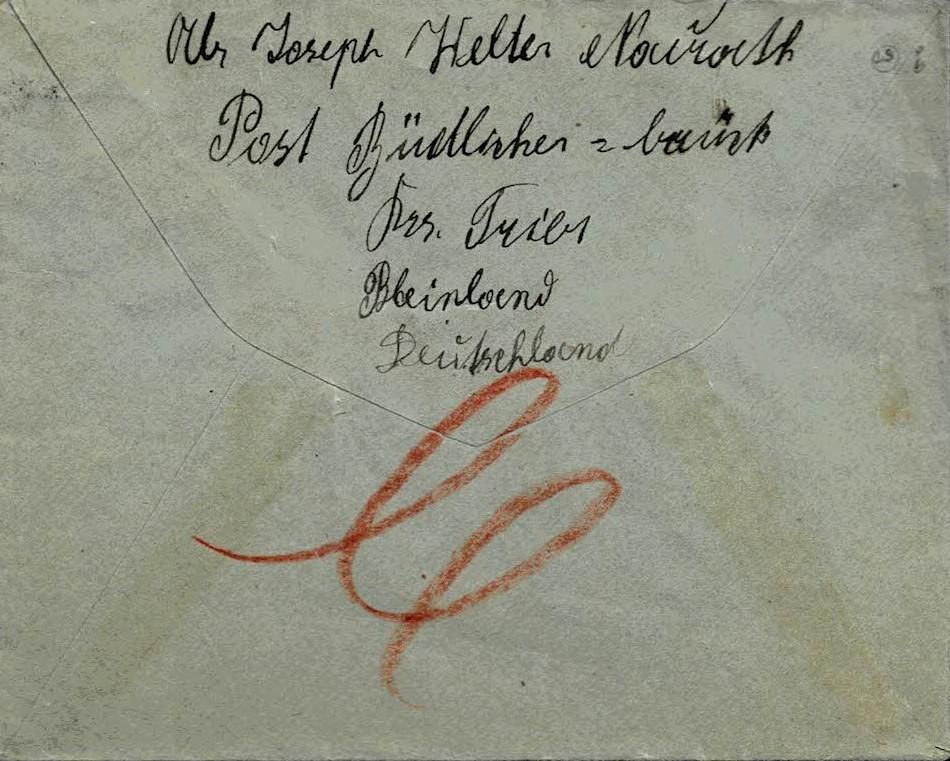 Abs Joseph Welter Naurath
Post Büdlicher = brück
Krs. Trier
Rheinland
Deutschland